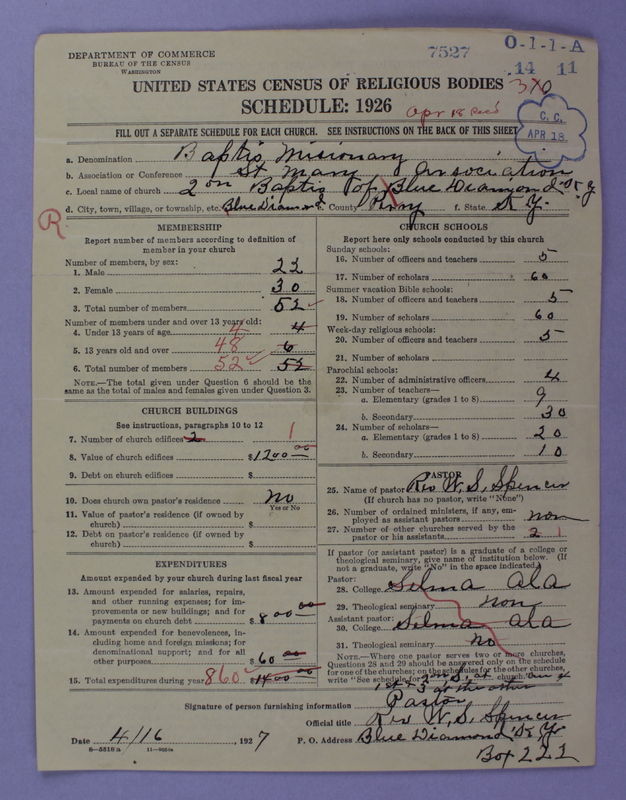 DEPARTMENT OF COMMERCE
BUREAU OF THE CENSUS
WASHINGTON
7527
O-1-1-A
14 11
UNITED STATES CENSUS OF RELIGIOUS BODIES
SCHEDULE: 1926
Apr 18 Recd
C. C.
APR 18
FILL OUT A SEPARATE SCHEDULE FOR EACH CHURCH. SEE INSTRUCTIONS ON THE BACK OF THIS SHEET
a. Denomination Baptis Missionary
b. Association or Conference St Mary Association
c. Local name of church 2 on Baptis of Blue Diamond Ky
d. City, town, village, or township, etc. Blue Diamond e. County Perry f. State Ky.
R
MEMBERSHIP
Report number of members according to definition of member in your church
Number of members, by sex:
1. Male 22
2. Female 30
3. Total number of members 52
Number of members under and over 13 years old:
4. Under 13 years of age 4 4
5. 13 years old and over 48 6
6. Total number of members 52 52
NOTE.—The total given under Question 6 should be the same as the total of males and females given under Question 3.
CHURCH BUILDINGS
See instructions, paragraphs 10 to 12
7. Number of church edifices 2 1
8. Value of church edifices $1200 00
9. Debt on church edifices $
10. Does church own pastor's residence No
Yes or No
11. Value of pastor's residence (if owned by church) $
12. Debt on pastor's residence (if owned by church) $
EXPENDITURES
Amount expended by church during last fiscal year
13. Amount expended for salaries, repairs, and other running expenses; for improvements or new buildings; and for payments on church debt $800 00
14. Amount expended for benevolences, including home and foreign missions; for denominational support; and for all other purposes $60 00
15. Total expenditures during year 860 $1400 00
CHURCH SCHOOLS
Report here only schools conducted by this church
Sunday schools:
16. Number of officers and teachers 5
17. Number of scholars 60
Summer vacation Bible schools:
18. Number of officers and teachers 5
19. Number of scholars 60
Week-day religious schools:
20. Number of officers and teachers 5
21. Number of scholars
Parochial schools:
22. Number of administrative officers 4
23. Number of teachers—
a. Elementary (grades 1 to 8) 9
b. Secondary 30
24. Number of scholars—
a. Elementary (grades 1 to 8) 20
b. Secondary 10
PASTOR
25. Name of pastor Rev W. S. Spencer
(If church has no pastor, write "None")
26. Number of ordained ministers, if any, employed as assistant pastors non
27. Number of other churches served by the pastor or his assistants 2 1
If pastor (or assistant pastor) is a graduate of a college or theological seminary, give name of institution below. (If not a graduate, write "No" in the space indicated)
Pastor:
28. College Selma Ala
29. Theological seminary non
Assistant pastor:
30. College Selma Ala
31. Theological seminary No
NOTE.—Where one pastor serves two or more churches, Questions 28 and 29 should be answered only on the schedule for one of the churches; on the schedules for the other churches, write "See schedule for church."
1st & 3 at the other
Signature of person furnishing information Pastor
Official title Rev W. S. Spencer
Date 4/16, 1927 P. O. Address Blue Diamond Ky.
Box 221